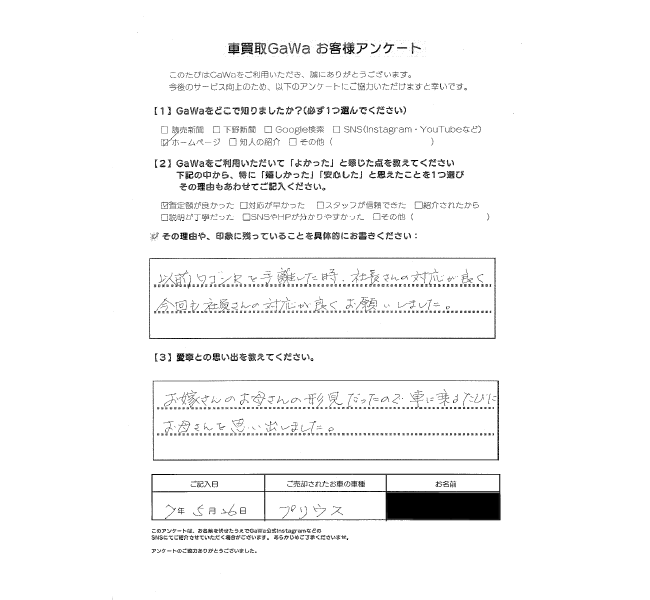 車買取GaWa お客様アンケート
このたびはGaWaをご利用いただき、誠にありがとうございます。
今後のサービス向上のため、以下のアンケートにご協力いただけますと幸いです。
【1】GaWaをどこで知りましたか？(必ず1つ選んでください)
□ 読売新聞 □ 下野新聞 □ Google検索 □ SNS(Instagram・YouTubeなど)
☑ ホームページ □ 知人の紹介 □ その他（ ）
【2】GaWaをご利用いただいて「よかった」と感じた点を教えてください
下記の中から、特に「嬉しかった」「安心した」と思えたことを1つ選び
その理由もあわせてご記入ください。
☑査定額が良かった □対応が早かった □スタッフが信頼できた □紹介されたから
□説明が丁寧だった □SNSやHPが分かりやすかった □その他（ ）
その理由や、印象に残っていることを具体的にお書きください：
以前ワゴンRを手離した時、社長さんの対応が良く
今回も社長さんの対応が良くお願いしました。
【3】愛車との思い出を教えてください。
お嫁さんのお母さんの形見だったので車に乗るたびに
お母さんを思い出しました。
ご記入日 ご売却されたお車の車種 お名前
7年 5月 26日 プリウス
このアンケートは、お名前を伏せたうえでGaWa公式Instagramなどの
SNSにてご紹介させていただく場合がございます。あらかじめご了承くださいませ。
アンケートのご協力ありがとうございました。